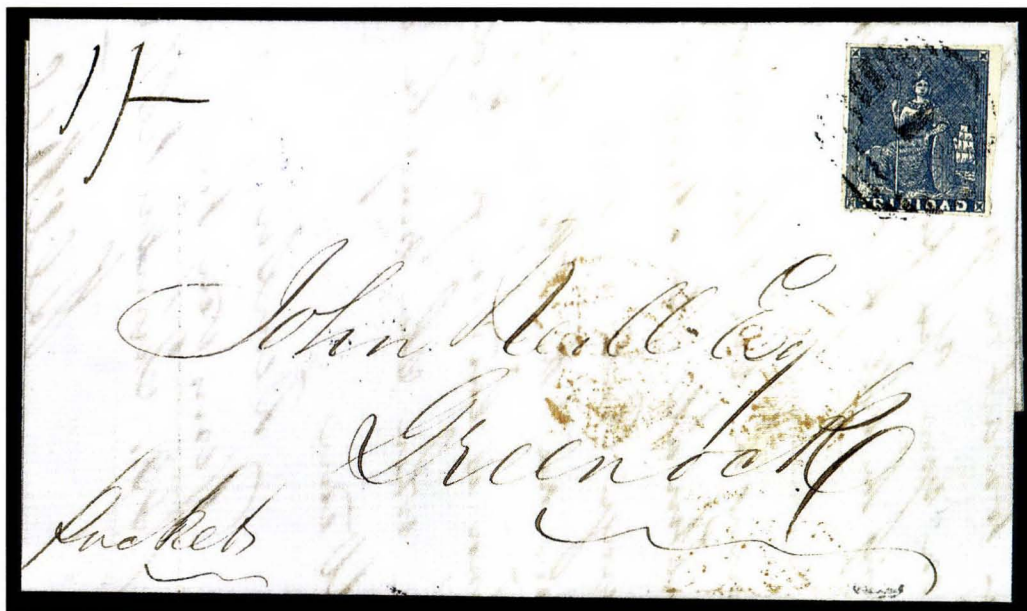 1/-
TRINIDAD
John
Esq
Greenock
Packet